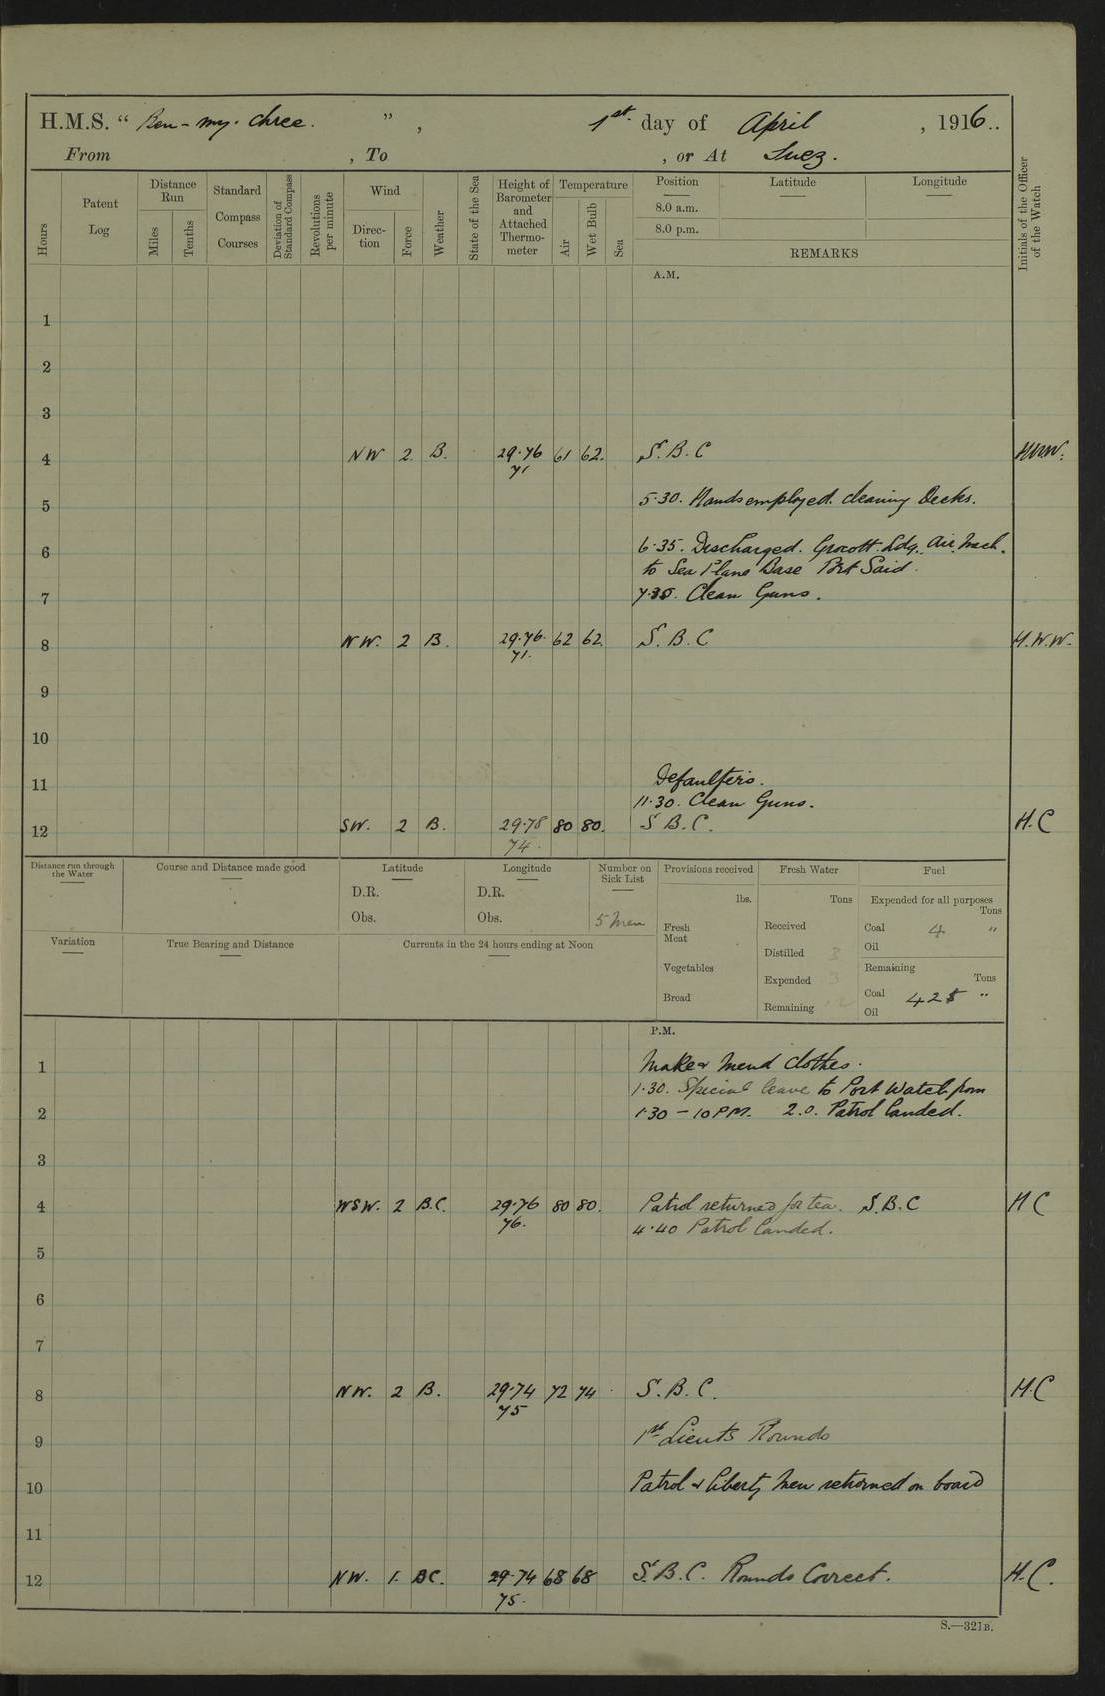 H.M.S. “ Ben-my-Chree. ” , 1st. day of April , 1916..
From , To , or At Suez.
Hours
Patent Log
Distance Run
Miles
Tenths
Standard Compass Courses
Deviation of Standard Compass
Revolutions per minute
Wind
Direction
Force
Weather
State of the Sea
Height of Barometer and Attached Thermometer
Temperature
Air
Wet Bulb
Sea
Position Latitude Longitude
8.0 a.m.
8.0 p.m.
REMARKS
Initials of the Officer of the Watch
A.M.
1
2
3
4 NW 2. B. 29.76 61 62. S.B.C
71
5 5.30. Hands employed. cleaning Decks.
6 6.35. Discharged. Grocott. Ldg. Air Mech.
to Sea Plane Base Port Said.
7 7.35. Clean Guns.
8 NW. 2 B. 29.76. 62 62. S.B.C H.W.W.
71.
9
10
11 Defaulters.
11.30. Clean Guns.
12 SW. 2 B. 29.78 80 80. S.B.C. H.C
74.
Distance run through the Water
Course and Distance made good
Latitude
D.R.
Obs.
Longitude
D.R.
Obs.
Number on Sick List
5 Men
Provisions received
lbs.
Fresh Meat
Vegetables
Bread
Fresh Water
Tons
Received
Distilled 3
Expended 3
Remaining
Fuel
Expended for all purposes
Tons
Coal 4 "
Oil
Remaining
Tons
Coal 425 "
Oil
Variation
True Bearing and Distance
Currents in the 24 hours ending at Noon
P.M.
1 Make & Mend Clothes.
1.30. Special leave to Port Watch from
2 1.30 – 10 PM. 2.0. Patrol Landed.
3
4 WSW. 2 B.C. 29.76 80 80. Patrol returned for tea. S.B.C H C
76. 4.40 Patrol Landed.
5
6
7
8 NW. 2 B. 29.74 72 74 S.B.C. H.C
75
9 1st Lieuts Rounds
10 Patrol & Liberty Men returned on board
11
12 NW. 1. BC. 29.74 68 68 S.B.C. Rounds Correct. H.C.
75.
S.—321B.